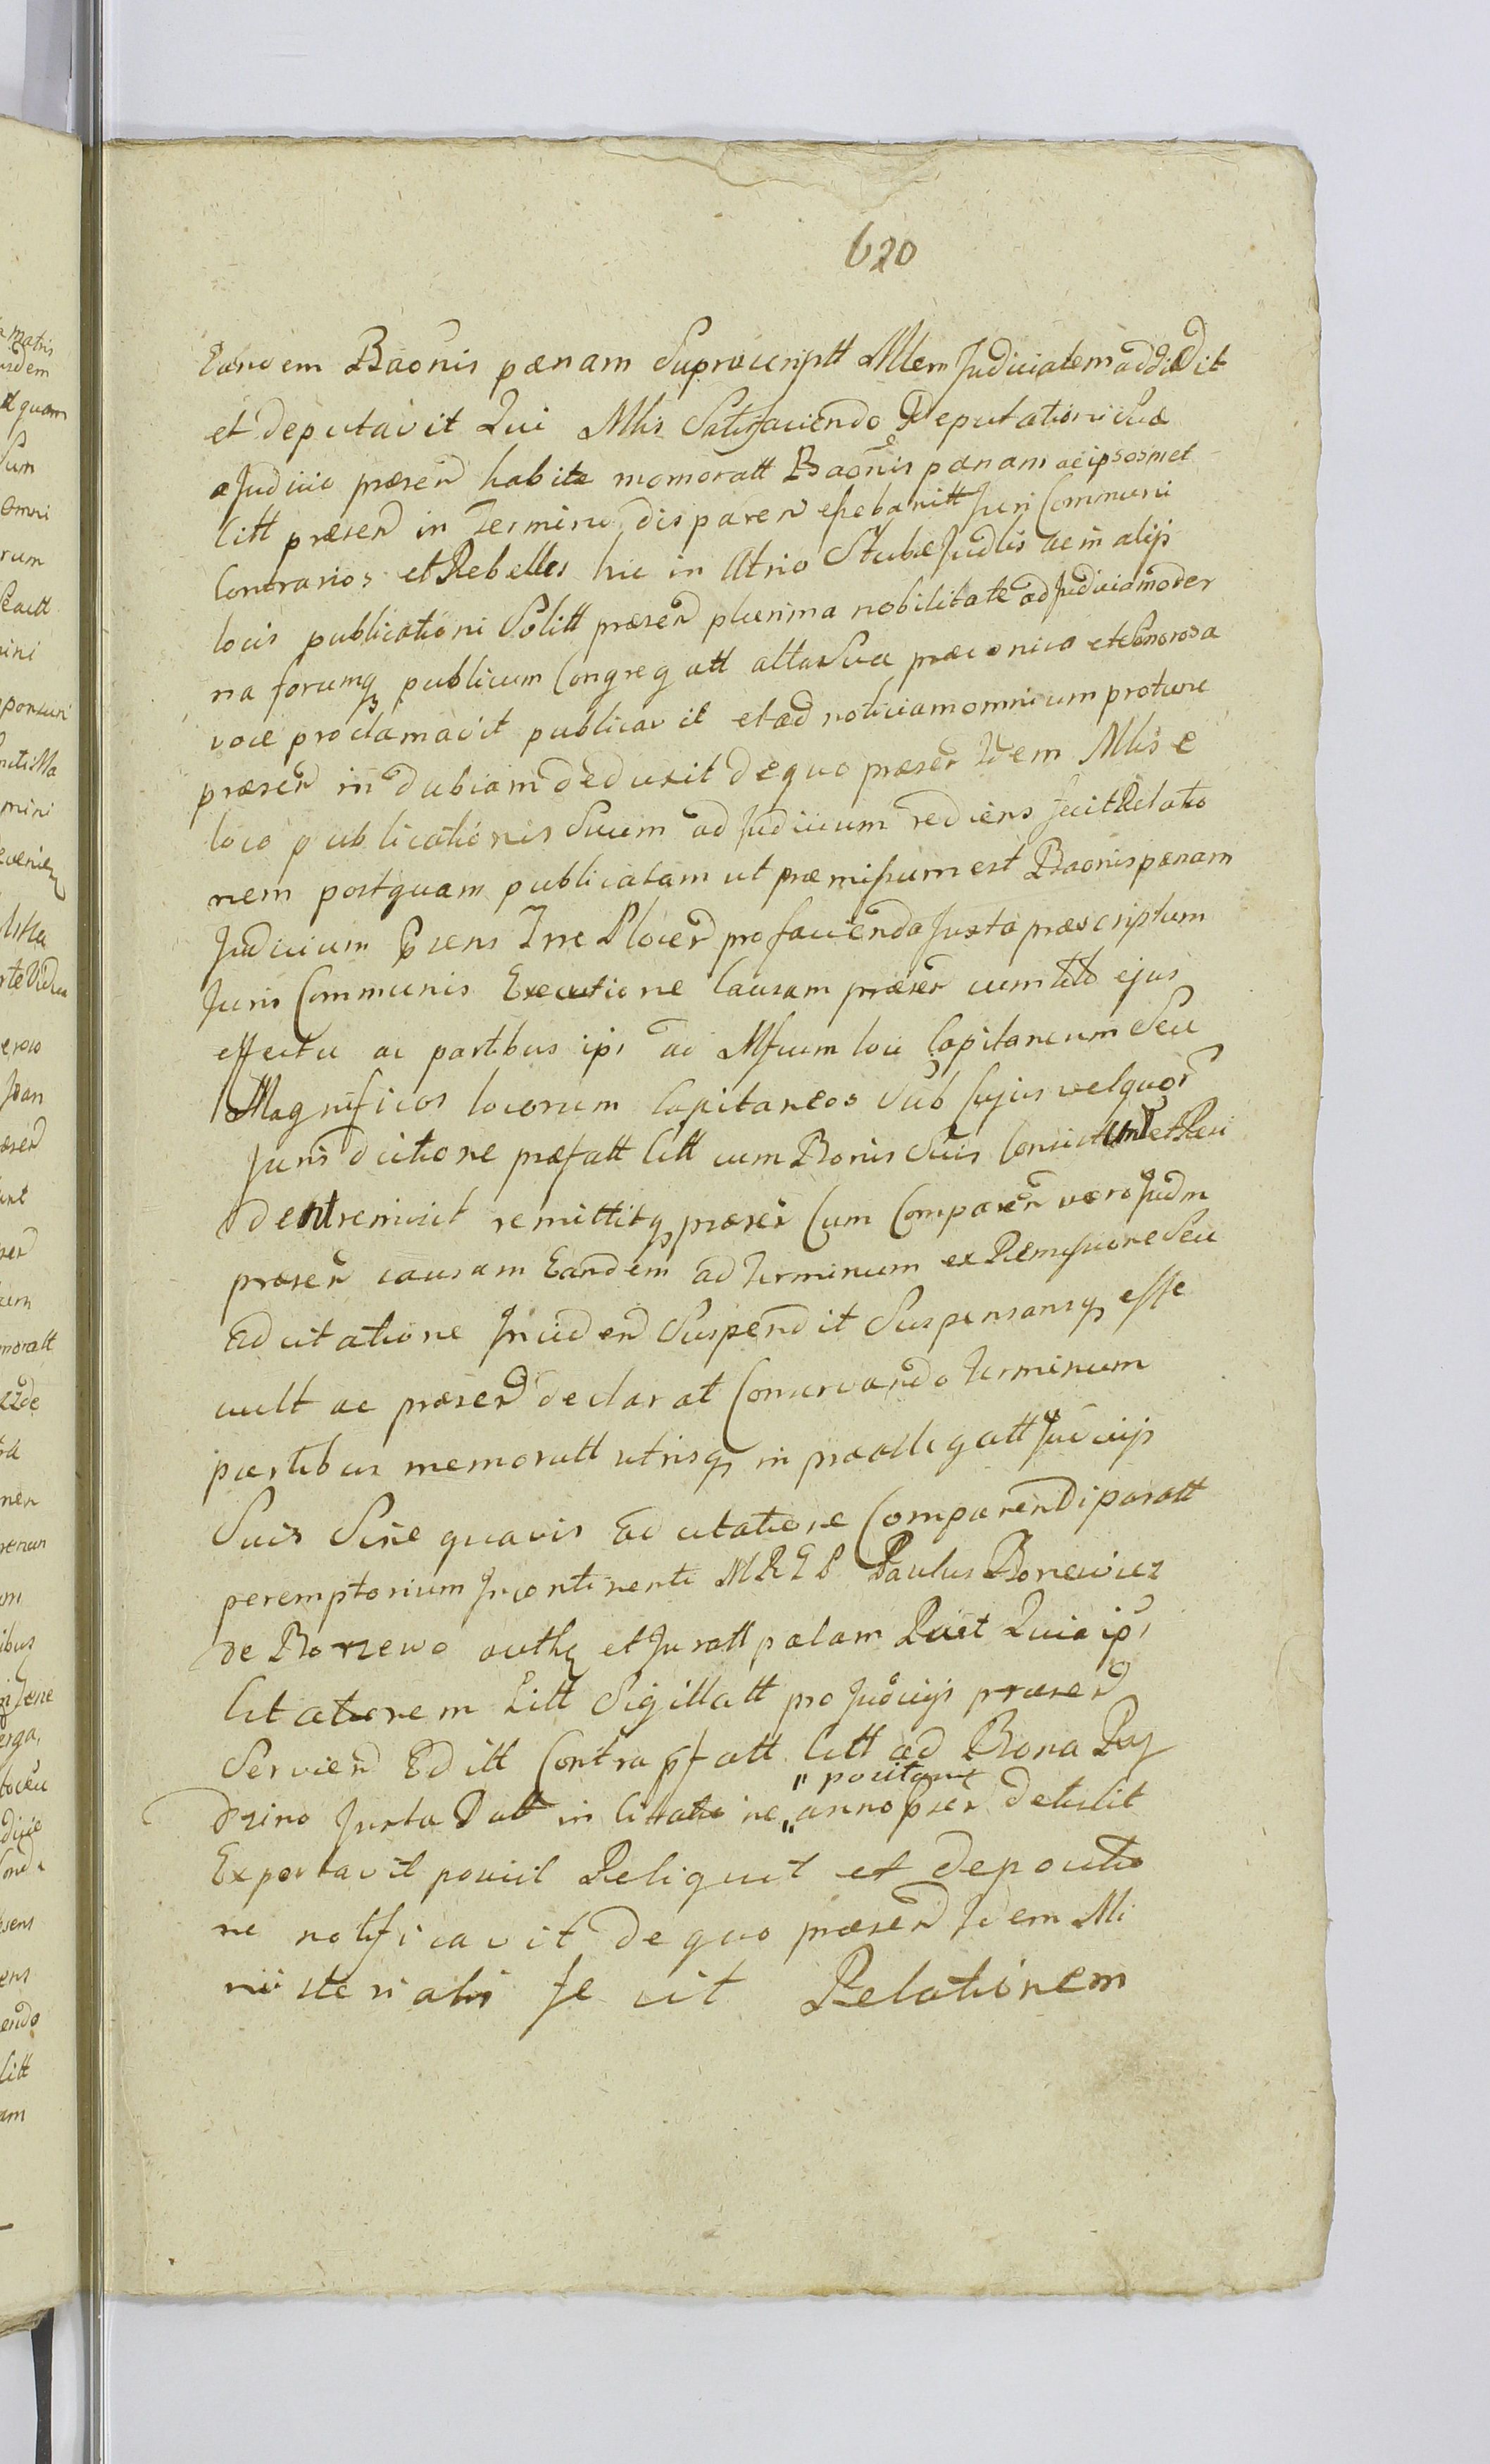 620
Eandem Baonis pœnam Suprascriptt Mlem Judicialem addidit
et deputavit Qui Mlis Satisfaciendo Deputationi Suæ
a Judicio præsend habitæ memoratt Baonis pœnam ac ipsosmet
Citt præsend in Termino disparen esse banitt Juri Communi
Contrarios et Rebelles hic in Atrio Stubæ Judlis ac in alijs
locis publicationi Solitt præsend plurima nobilitate ad Judicia moder
na forumq publicum Congregatt alta Sua præconica et Sonorosa
voce proclamavit publicavit et ad noticiam omnium protunc
præsend indubiam deduxit de quo præsen Idem Mlis e
loco publicationis Suum ad Judicium rediens fecit Relatio
nem postquam publicatam ut præmissum est Baonis pœnam
Judicium præsens Trre Plocen pro facienda Juxta præscriptum
Juris Communis Executione Causam præsen cum toto ejus
effectu ac partibus ips ad Mficum loci Capitaneum Seu
Magnificos locorum Capitaneos Sub Cujus vel quor
Jurisdictione præfatt Citt cum Bonis Suis Consistunt et Resi
dent remisit remittitq præsen Cum Comparen vero Judm
præsen causam Eandem ad Terminum ex Remissione Seu
Adcitatione Inciden Suspendit Suspensamq esse
vult ac præsen declarat Conservando Terminum
partibus memoratt utrisq in præallegatt Judicijs
Suis Sine quavis adcitatione Comparendi paratt
peremptorium Incontinenti M R E P Paulus Boncewicz
de Borzewo authq et Juratt palam Recit Quia ips
Citationem Litt Sigillatt pro Judicijs præsend
Servien Editt Contra præfatt Citt ad Bona Raj
dzino Juxta Datt in Citatione " anno præsen detulit
" positam
Exportavit posuit Reliquit et de positio
ne notificavit De quo præsend Idem Mi
nisterialis fecit Relationem